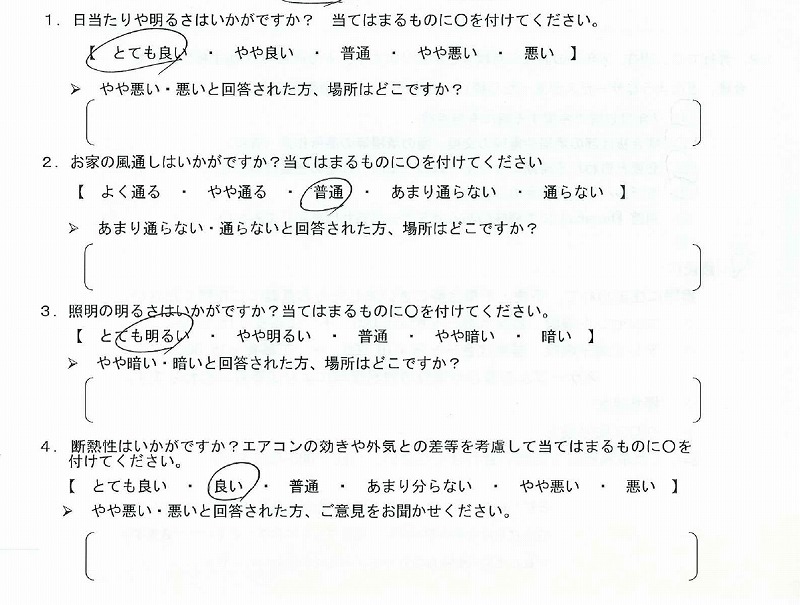 1．日当たりや明るさはいかがですか？　当てはまるものに〇を付けてください。
【　とても良い　・　やや良い　・　普通　・　やや悪い　・　悪い　】
➢　やや悪い・悪いと回答された方、場所はどこですか？
2．お家の風通しはいかがですか？当てはまるものに〇を付けてください
【　よく通る　・　やや通る　・　普通　・　あまり通らない　・　通らない　】
➢　あまり通らない・通らないと回答された方、場所はどこですか？
3．照明の明るさはいかがですか？当てはまるものに〇を付けてください。
【　とても明るい　・　やや明るい　・　普通　・　やや暗い　・　暗い　】
➢　やや暗い・暗いと回答された方、場所はどこですか？
4．断熱性はいかがですか？エアコンの効きや外気との差等を考慮して当てはまるものに〇を
付けてください。
【　とても良い　・　良い　・　普通　・　あまり分らない　・　やや悪い　・　悪い　】
➢　やや悪い・悪いと回答された方、ご意見をお聞かせください。